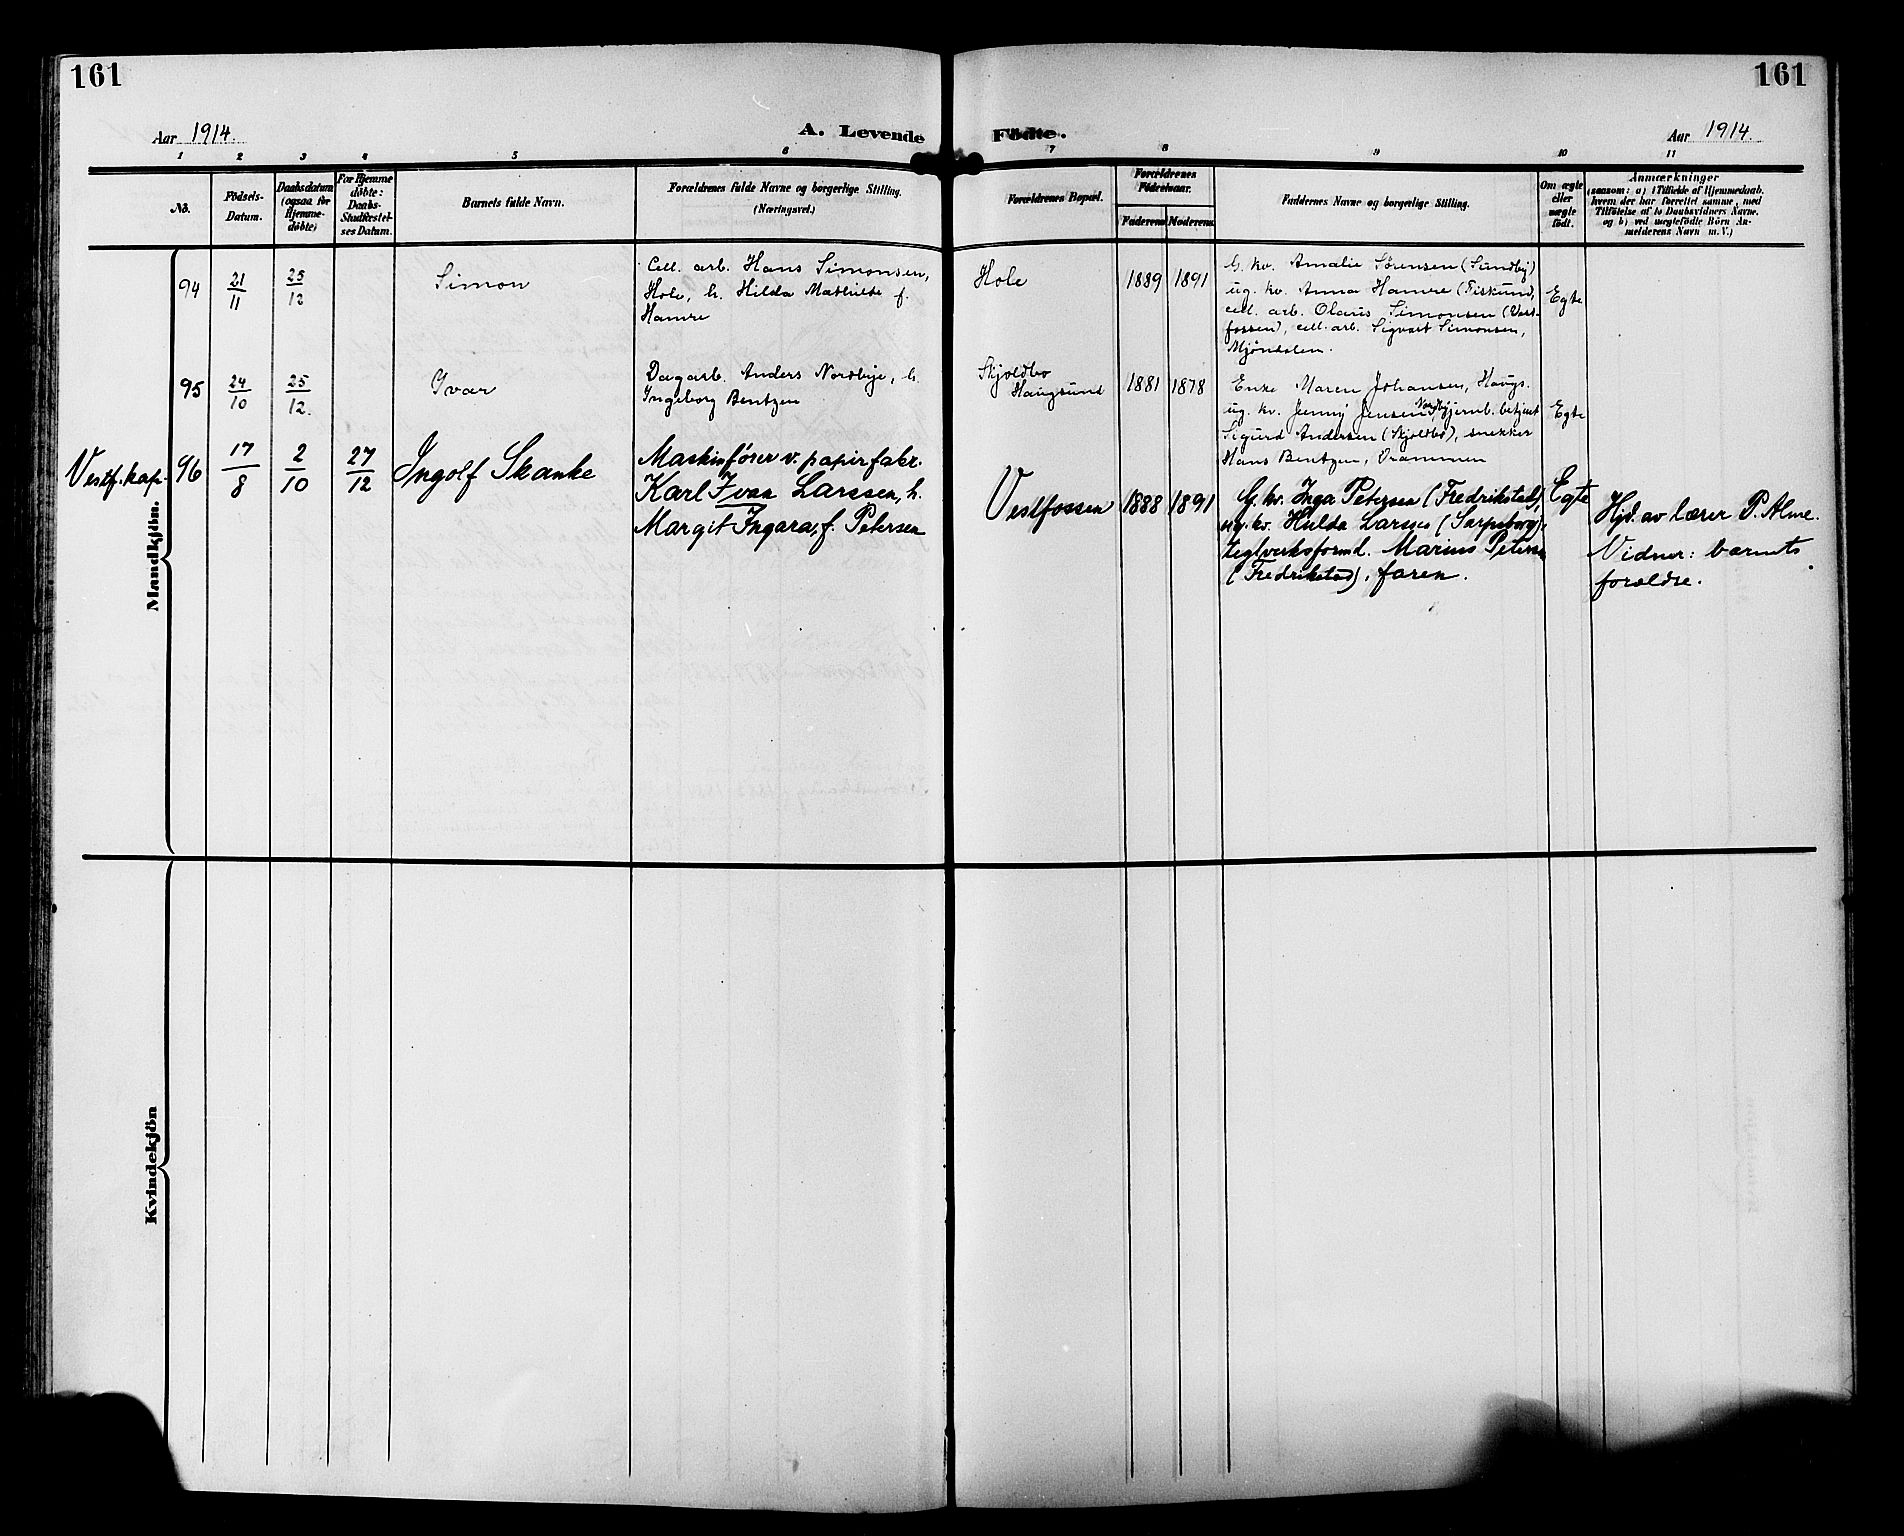 161
161
Aar 1914.
A. Levende Födte.
Aar 1914.
1 2 3 4 5 6 7 8 9 10 11
No.
Födsels-
Datum.
Daabsdatum
(ogsaa for
Hjemme-
döbte)
For Hjemme
döbte:
Daabs-
Stadfæstel-
ses Datum.
Barnets fulde Navn.
Forældrenes fulde Navne og borgerlige Stilling.
(Næringsvei.)
Forældrenes Bopæl.
Forældrenes
Födselsaar.
Faderens Moderens
Faddernes Navne og borgerlige Stilling.
Om ægte
eller
uægte
födt.
Anmærkninger
(saasom: a) i Tilfælde af Hjemmedaab.
hvem der har forrettet samme, med
Tilföielse af to Daabsvidners Navne.
og b) ved uægtefödte Börn An-
melderens Navn m. V.)
Mandkjön.
94 21/11 25/12 Simon
Cell. arb. Hans Simonsen,
Hole, h. Hilda Mathilde f.
Hamre
Hole 1889 1891
G. kv. Amalie Sørensen (Sundby)
ug. kv. Anna Hamre (Fiskum),
cell. arb. Olaus Simonsen (Vest-
fossen), cell. arb. Sigvart Simonsen,
Mjöndalen.
Egte
95 24/10 25/12. Ivar
Dagarb. Anders Nordbye, h.
Ingeborg Bentzen
Skjoldbo
Haugsund
1881 1878
Enke Maren Johansen, Haugs.
ug. kv. Jenny Jensen Nordby, jernb. betjent
Sigurd Andersen (Skjoldbo), snekker
Hans Bentzen, Drammen
Egte
Vestf. kap. 96 17/8 2/10 27/12 Ingolf Skanke
Maskinfører v. papirfabr.
Karl Ivan Larssen, h.
Margit Ingara, f. Petersen
Vestfossen 1888 1891
G. kv. Inga Petersen (Fredrikstad),
ug. kv. Hulda Larssen (Sarpsborg),
teglverksformd. Marius Petersen
(Fredrikstad), faren.
Egte
Hjd. av lærer P. Alme.
Vidner: barnets
forældre.
Kvindekjön